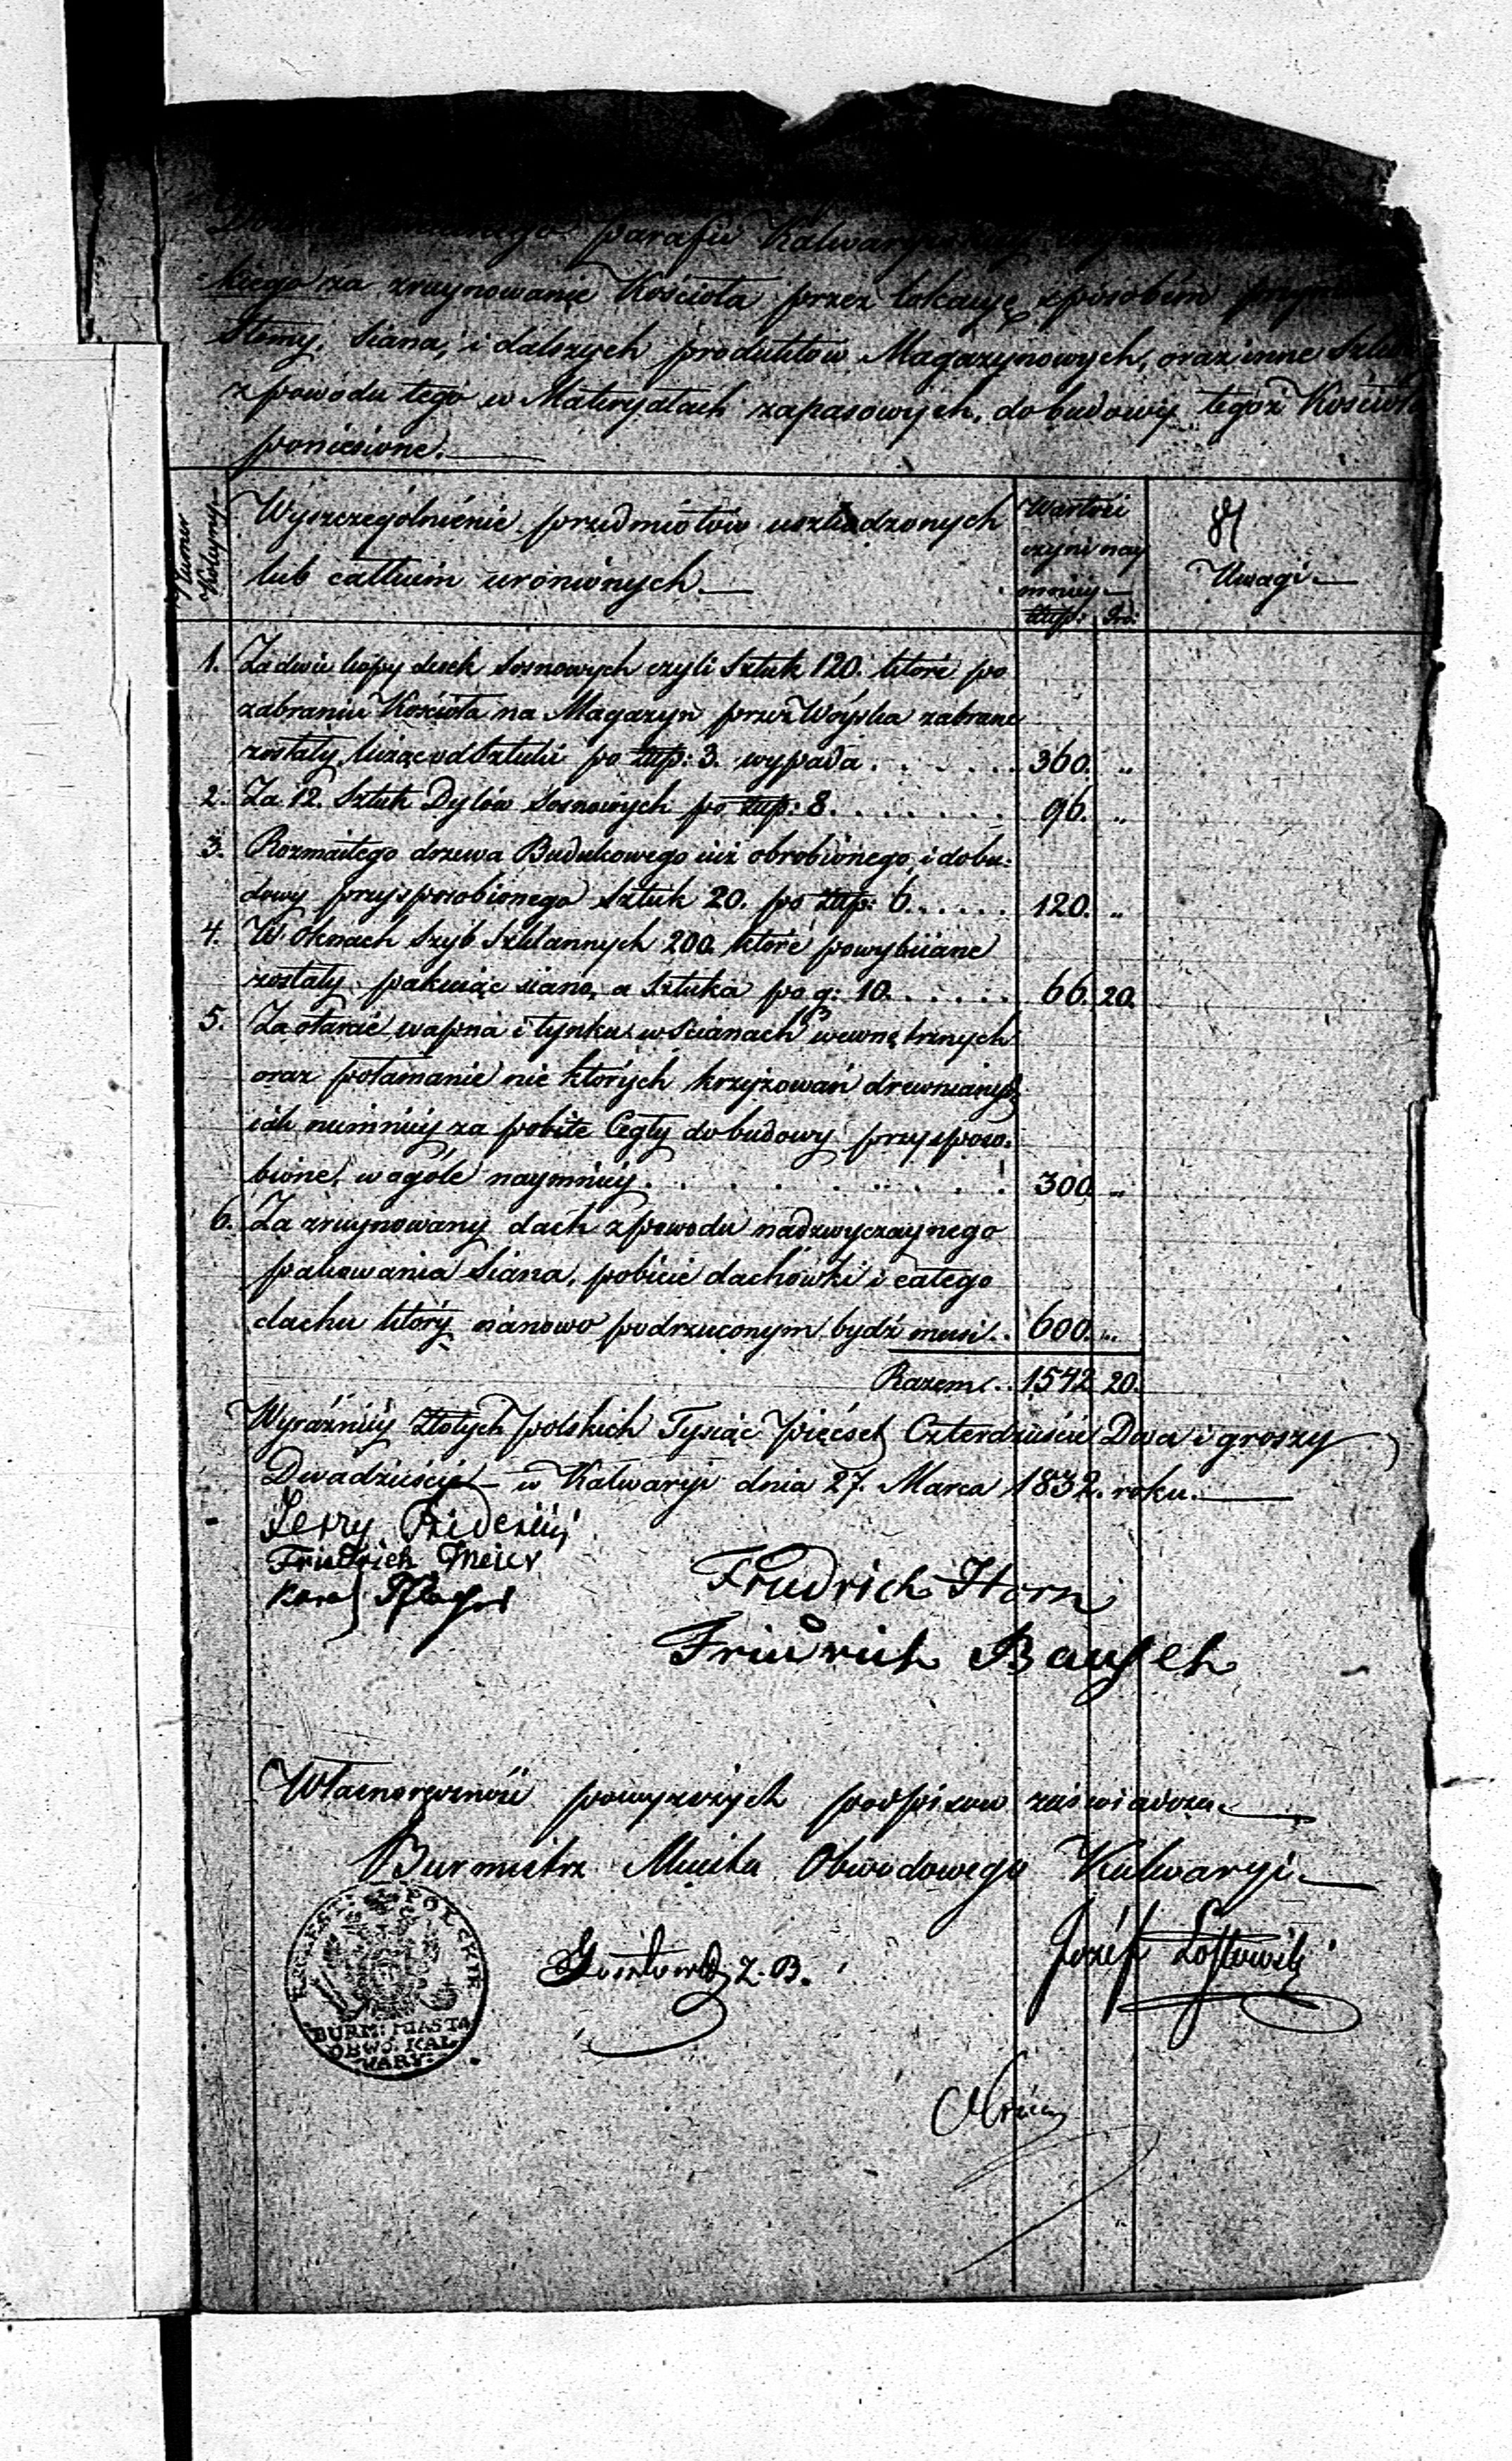 parafii Kalwaryiskiey
kiego za zruynowanie Kościoła przez lokacyę sposobem
Słomy, Siana, i dalszych produktów Magazynowych, oraz inne
z powodu tego w Materyałach zapasowych, do budowy tegoż Kościoła
poniesione.
Numer Kolejny
Wyszczególnienie przedmiotów uszkodzonych
lub całkiem uronionych.
Wartość
czyni nay
mniey
złtp: Gro:
81
Uwagi
1. Za dwie kopy desek sosnowych czyli Sztuk 120. które po
zabraniu Kościoła na Magazyn przez Woyska zabrane
zostały, licząc od Sztuki po złtp: 3. wypada . . . . . . 360. "
2. Za 12. Sztuk Dylów Sosnowych po złtp: 8. . . . . . . 96. "
3. Rozmaitego drzewa Budulcowego już obrobionego, i do bu-
dowy przysposobionego Sztuk 20. po złtp: 6. . . . . 120. "
4. W Oknach Szyb Szklannych 200. które powybiiane
zostały, pakuiąc siano, a Sztuka po g: 10. . . . . . 66. 20.
5. Za otarcie wapna i tynku w Ścianach wewnętrznych
oraz połamanie nie których krzyżowań drewnianych
iak niemniey za pobite Cegły do budowy przysposo-
bione, w ogóle naymniey . . . . . . . . 300. "
6. Za zruynowany dach z powodu nadzwyczaynego
pakowania Siana, pobicie dachówki i całego
dachu który nanowo podrzuconym bydź musi . . 600. "
Razem . . 1542 20.
Wyraźniey Złotych polskich Tysiąc pięćset Czterdzieście Dwa i groszy
Dwadzieście – w Kalwaryi dnia 27. Marca 1832. roku.
Jerzy
Friedrich Meier
Karol
Friedrich Horn
Friedrich Bausch
Własnoręczność powyższych podpisów zaświadcza
Burmistrz Miasta Obwodowego Kalwaryi
KROLEST: POLSKIE
BURM: MIASTA
OBWO: KAL
WARY:
Z. B.
Józef